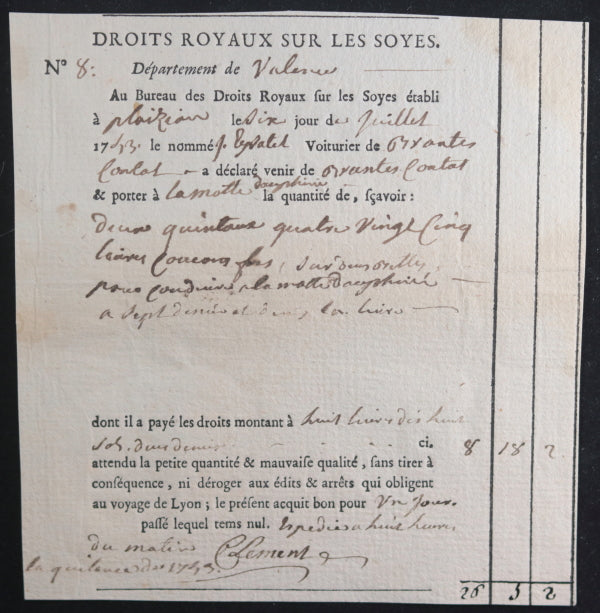 DROITS ROYAUX SUR LES SOYES.
N° 8: Département de Valence
Au Bureau des Droits Royaux sur les Soyes établi
à ploizian le Six jour de Juillet
1743. le nommé Voiturier de Brantes
Contat a déclaré venir de Brantes Contat
& porter à la motte dauphiné la quantité de, sçavoir:
deux quintaux quatre vingt Cinq
livres Coucons fins, Sur
pour Conduire a la motte dauphiné
a Sept deniers et demi la livre
dont il a payé les droits montant à huit livres dix huit
sols deux deniers ci. 8 18 2
attendu la petite quantité & mauvaise qualité, sans tirer à
conséquence, ni déroger aux édits & arrêts qui obligent
au voyage de Lyon; le présent acquit bon pour Un Jour
passé lequel tems nul. Expedié a huit heures
du matin Clement
la quitence de 1743.
26 5 2